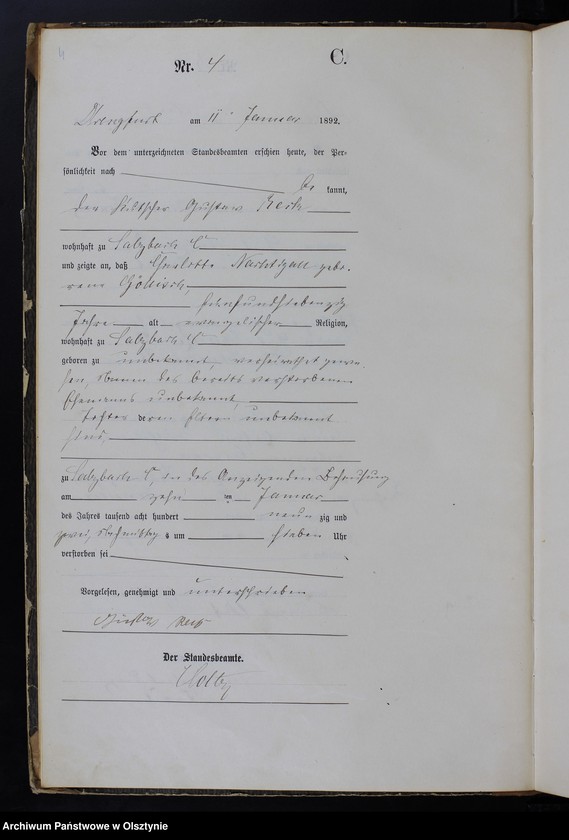 4
Nr. 4 C.
Drengfurt am 11 Januar 1892.
Vor dem unterzeichneten Standesbeamten erschien heute, der Per-
sönlichkeit nach
be kannt,
der Gustav
wohnhaft zu Salzbach C
und zeigte an, daß Charlotte Nachtigall gebo-
rene
fünfundsiebenzig
Jahre alt evangelischer Religion,
wohnhaft zu Salzbach C
geboren zu unbekannt, verheirathet gewe-
sen, Namen des bereits verstorbenen
Ehemanns unbekannt,
Tochter deren Eltern unbekannt
sind,
zu Salzbach C, in des Anzeigenden Behausung
am zehn ten Januar
des Jahres tausend acht hundert neun zig und
zwei, Nachmittag s um sieben Uhr
verstorben sei
Vorgelesen, genehmigt und unterschrieben
Gustav
Der Standesbeamte.
Archiwum Państwowe w Olsztynie